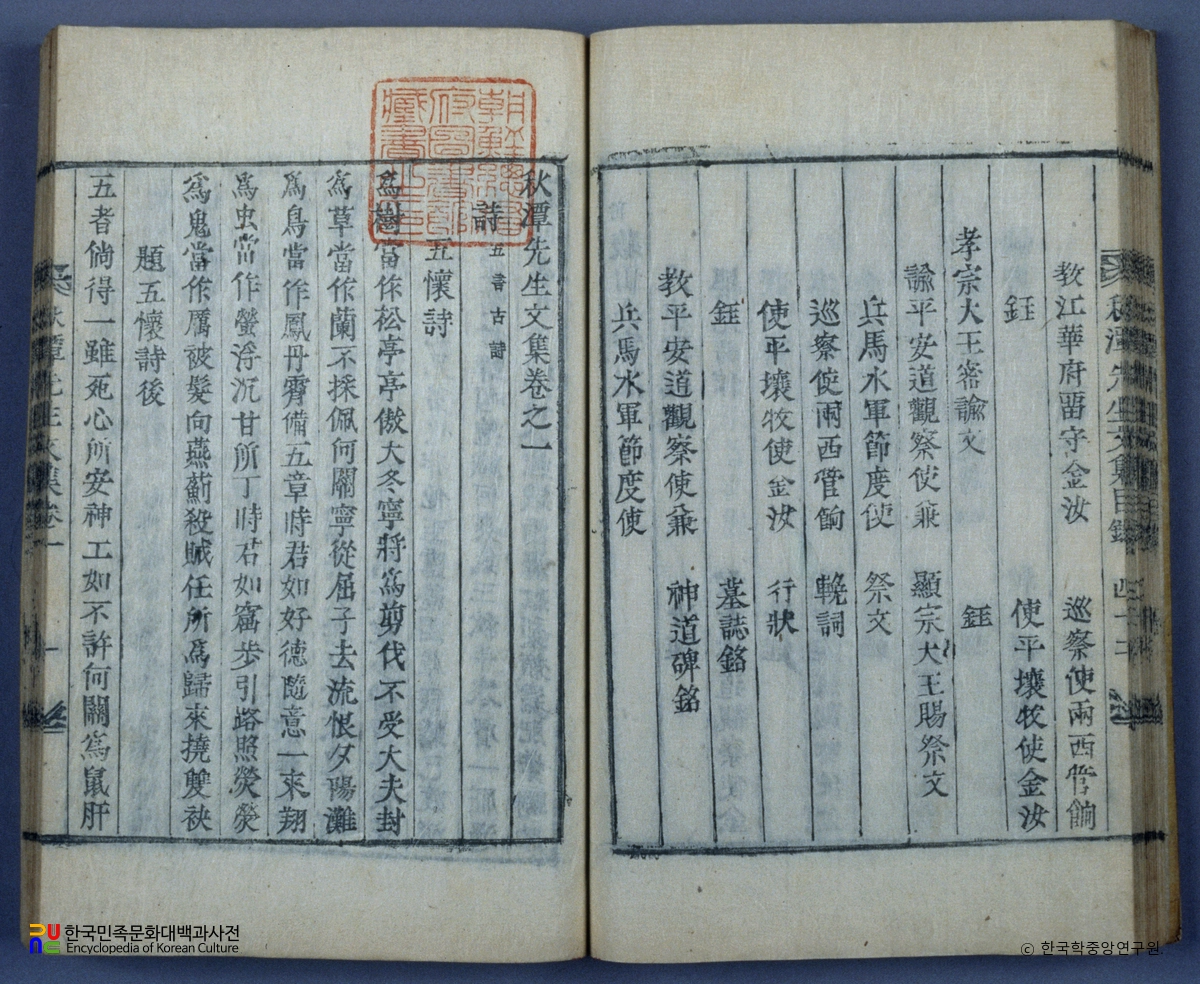 秋潭先生文集目錄
敎江華府畱守金汝　巡察使兩西管餉
鈺　使平壤牧使金汝
孝宗大王密諭文　鈺
諭平安道觀察使兼　顯宗大王賜祭文
兵馬水軍節度使　祭文
巡察使兩西管餉　輓詞
使平壤牧使金汝　行狀
鈺　墓誌銘
敎平安道觀察使兼　神道碑銘
兵馬水軍節度使
朝鮮總督
府圖書館
藏書之印
秋潭先生文集卷之一
詩 五言古詩
五懷詩
爲樹當作松亭亭傲大冬寧將爲剪伐不受大夫封
爲草當作蘭不採佩何關寧從屈子去流恨夕陽灘
爲鳥當作鳳丹霄備五章時君如好德隨意一來翔
爲虫當作螢浮沉甘所丁時君如窘步引路照熒熒
爲鬼當作厲被髮向燕薊殺賊任所爲歸來撓雙袂
題五懷詩後
五者倘得一雖死心所安神工如不許何關爲鼠肝
秋潭先生文集卷一
一
한국민족문화대백과사전
Encyclopedia of Korean Culture
ⓒ 한국학중앙연구원